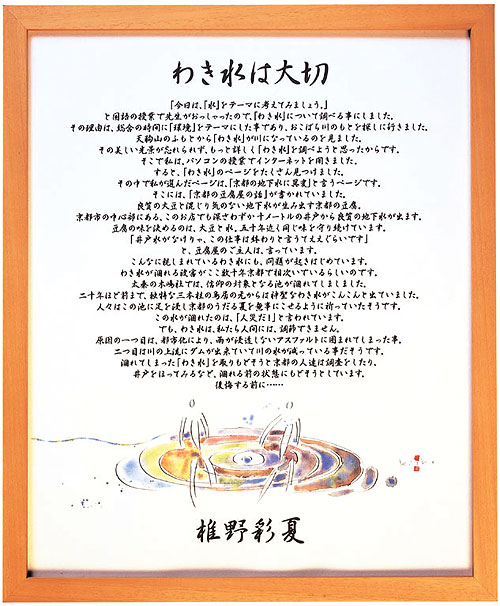 わき水は大切
「今日は、「水」をテーマに考えてみましょう。」
と国語の授業で先生がおっしゃったので、「わき水」について調べる事にしました。
その理由は、総合の時間に「環境」をテーマにした事であり、おこばち川のもとを探しに行きました。
天狗山のふもとから「わき水」が川になっているのを見ました。
その美しい光景が忘れられず、もっと詳しく「わき水」を調べようと思ったからです。
そこで私は、パソコンの授業でインターネットを開きました。
すると、「わき水」のページをたくさん見つけました。
その中で私が選んだページは、「京都の地下水に異変」と言うページです。
そこには、「京都の豆腐屋の話」が書かれていました。
良質の大豆と混じり気のない地下水が生み出す京都の豆腐。
京都市の中心部にある、このお店でも深さわずか十メートルの井戸から良質の地下水が出ます。
豆腐の味を決めるのは、大豆と水。五十年近く同じ味を守り続けています。
「井戸水がなけりゃ、この仕事は終わりと言うてええぐらいです」
と、豆腐屋のご主人は、言っています。
こんなに親しまれているわき水にも、問題が起きはじめています。
わき水が涸れる被害がここ数十年京都で相次いでいるらしいのです。
太秦の木嶋社では、信仰の対象となる池が涸れてしまいました。
二十年ほど前まで、独特な三本柱の鳥居の元からは神聖なわき水がこんこんと出ていました。
人々はこの池に足を浸し京都のうだる夏を無事にこせるように祈っていたそうです。
この水が涸れたのは、「人災だ!」と言われています。
でも、わき水は、私たち人間には、調節できません。
原因の一つ目は、都市化により、雨が浸透しないアスファルトに囲まれてしまった事。
二つ目は川の上流にダムが出来ていて川の水が減っている事だそうです。
涸れてしまった「わき水」を取りもどそうと京都の人達は調査をしたり、
井戸をほってみるなど、涸れる前の状態にもどそうとしています。
後悔する前に……
椎野彩夏